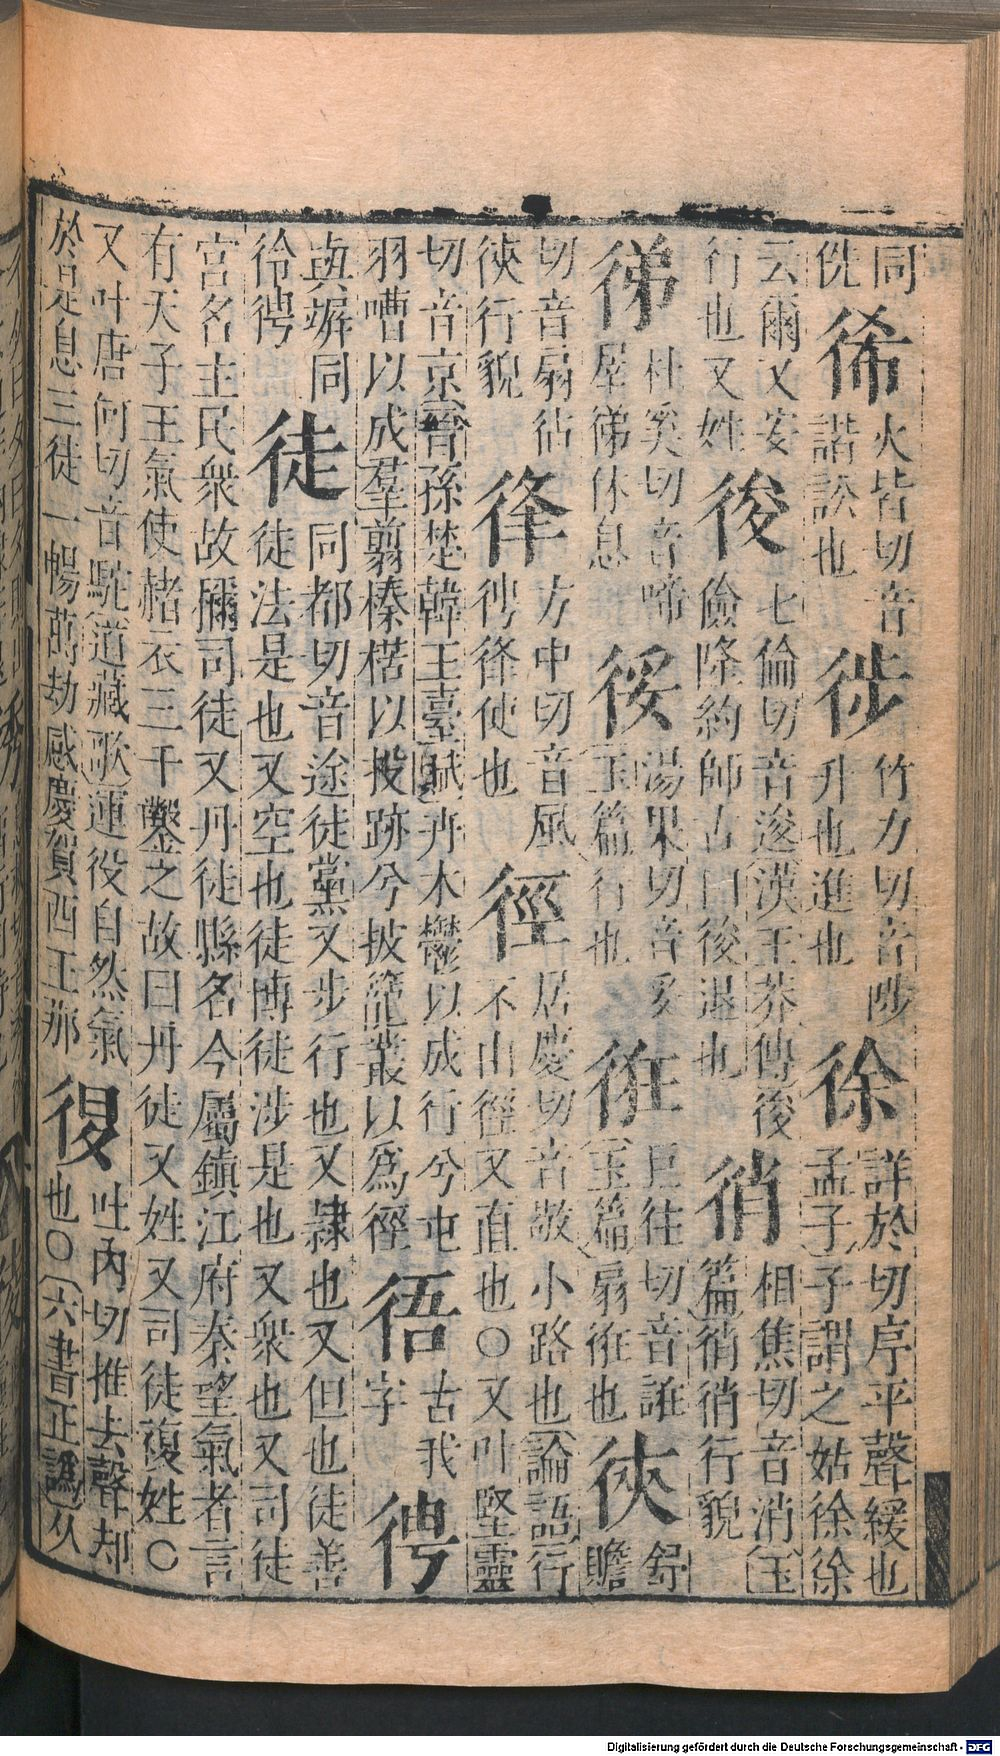 同侁 俙 火皆切音諧訟也 徏 竹力切音陟升也進也 徐 詳於切序平聲緩也孟子子謂之姑徐徐
云爾又安行也又姓 七倫切音逡漢王莽傳後儉隆約師古曰後退也 相焦切音消玉篇行貌
杜奚切音啼犀休息 湯果切音妥玉篇行也 巨往切音誑玉篇扇也 舒贍
切音扇行貌 方中切音風使也 徑 居慶切音敬小路也論語行不由徑又直也○又叶堅靈
切音京晉孫楚韓王臺賦卉木鬱以成行兮屯羽嘈以成羣翦榛楛以投跡兮披籠叢以爲徑 古我字
與竮同 徒 同都切音途徒黨又步行也又隸也又但也徒善徒法是也又空也徒博徒涉是也又衆也又司徒
官名主民衆故彌司徒又丹徒縣名今屬鎮江府秦望氣者言有天子王氣使赭衣三千鑿之故曰丹徒又姓又司徒複姓○
又叶唐何切音駝道藏歌運役自然氣於是息三徒一暢萬劫感慶賀酉王那 吐內切推去聲却也○六書正譌从